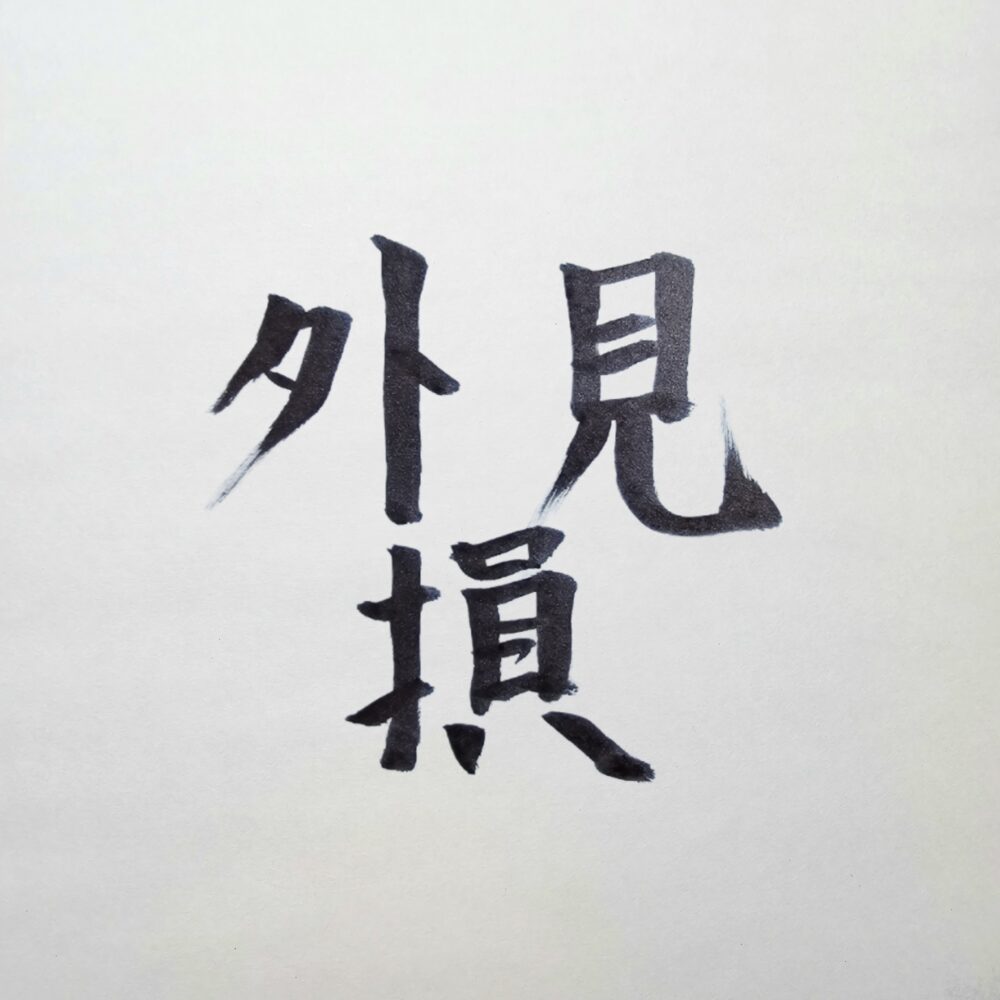 外見
損